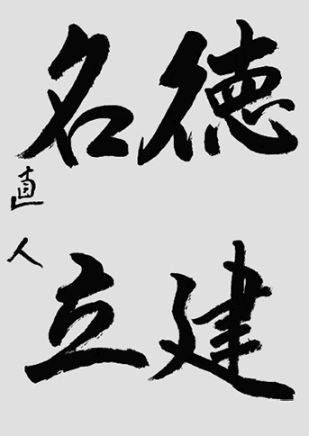 徳建
名立
直人